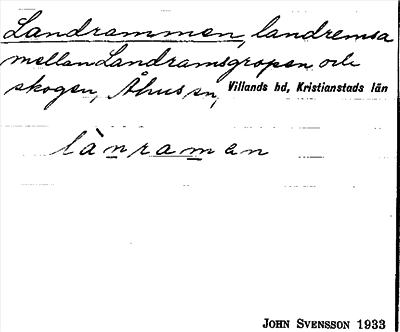 Landrammen, landremsa
mellan Landramsgropen och
skogen, Åhus sn, Villands hd, Kristianstads län
lànramen
JOHN SVENSSON 1933